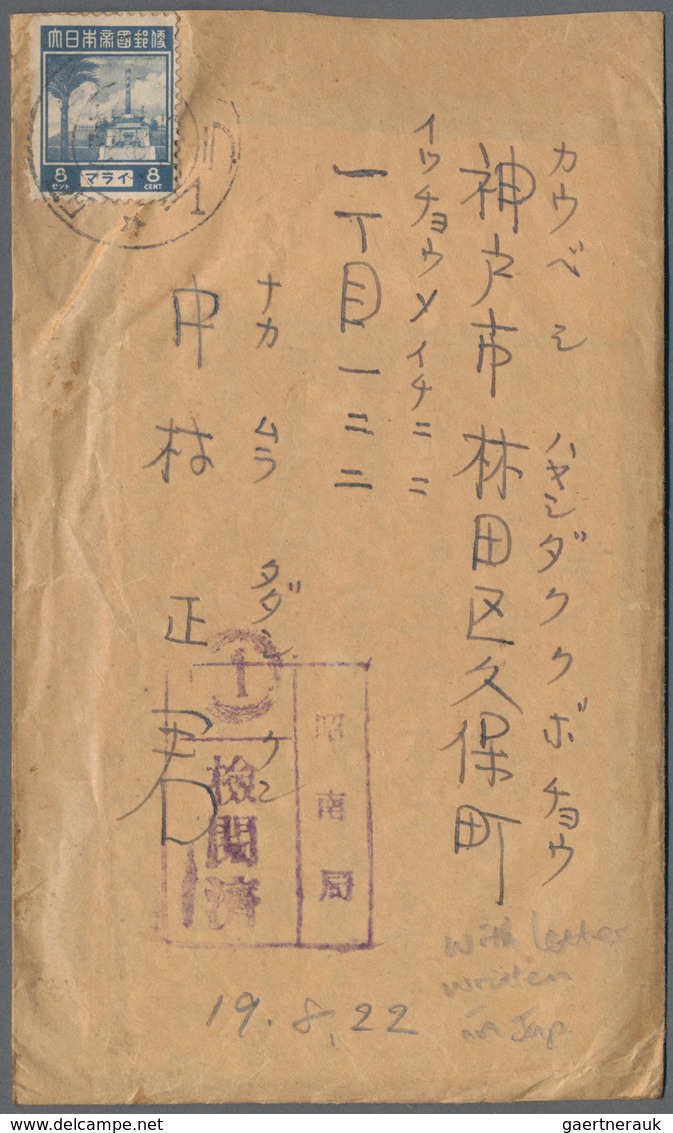 大日本帝國郵便
8 マライ 8
セント CENT
1
カウベ シ ハヤシダククボチョウ
神戸市林田区久保町
イッチョウメイチニニ
一丁目一二二
ナカ ムラ タダシ クン
中村正君
1
昭南局
檢閲濟
19.8.22
with letter
written
in Jap.
gaertnerauk